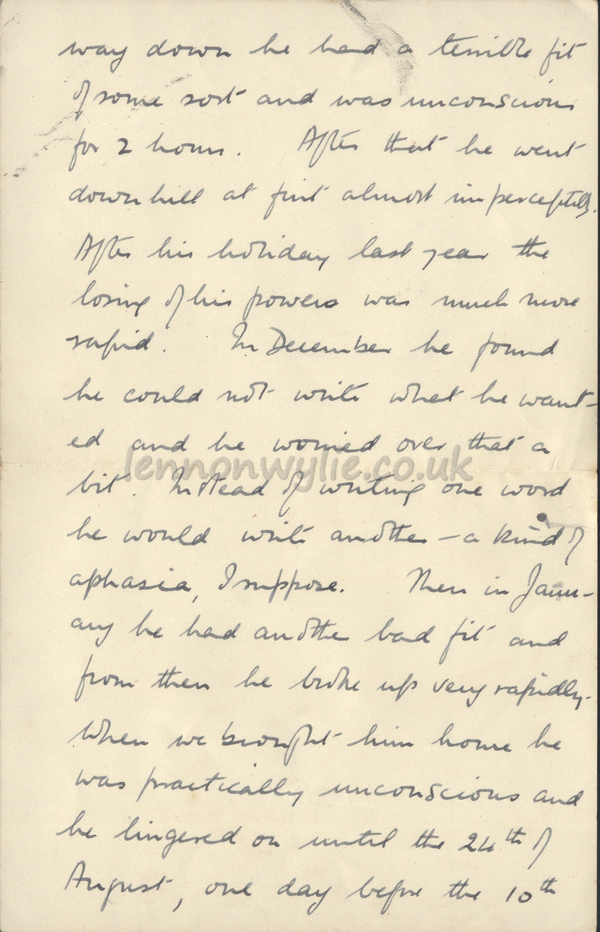 way down he had a terrible fit
of some sort and was unconscious
for 2 hours. After that he went
downhill at first almost imperceptibly.
After his holiday last year the
losing of his powers was much more
rapid. In December he found
he could not write what he want-
ed and he worried over that a
lennonwylie.co.uk
bit. Instead of writing one word
he would write another - a kind of
aphasia, I suppose. Then in Janu-
ary he had another bad fit and
from then he broke up very rapidly.
When we brought him home he
was practically unconscious and
he lingered on until the 24th of
August, one day before the 10th